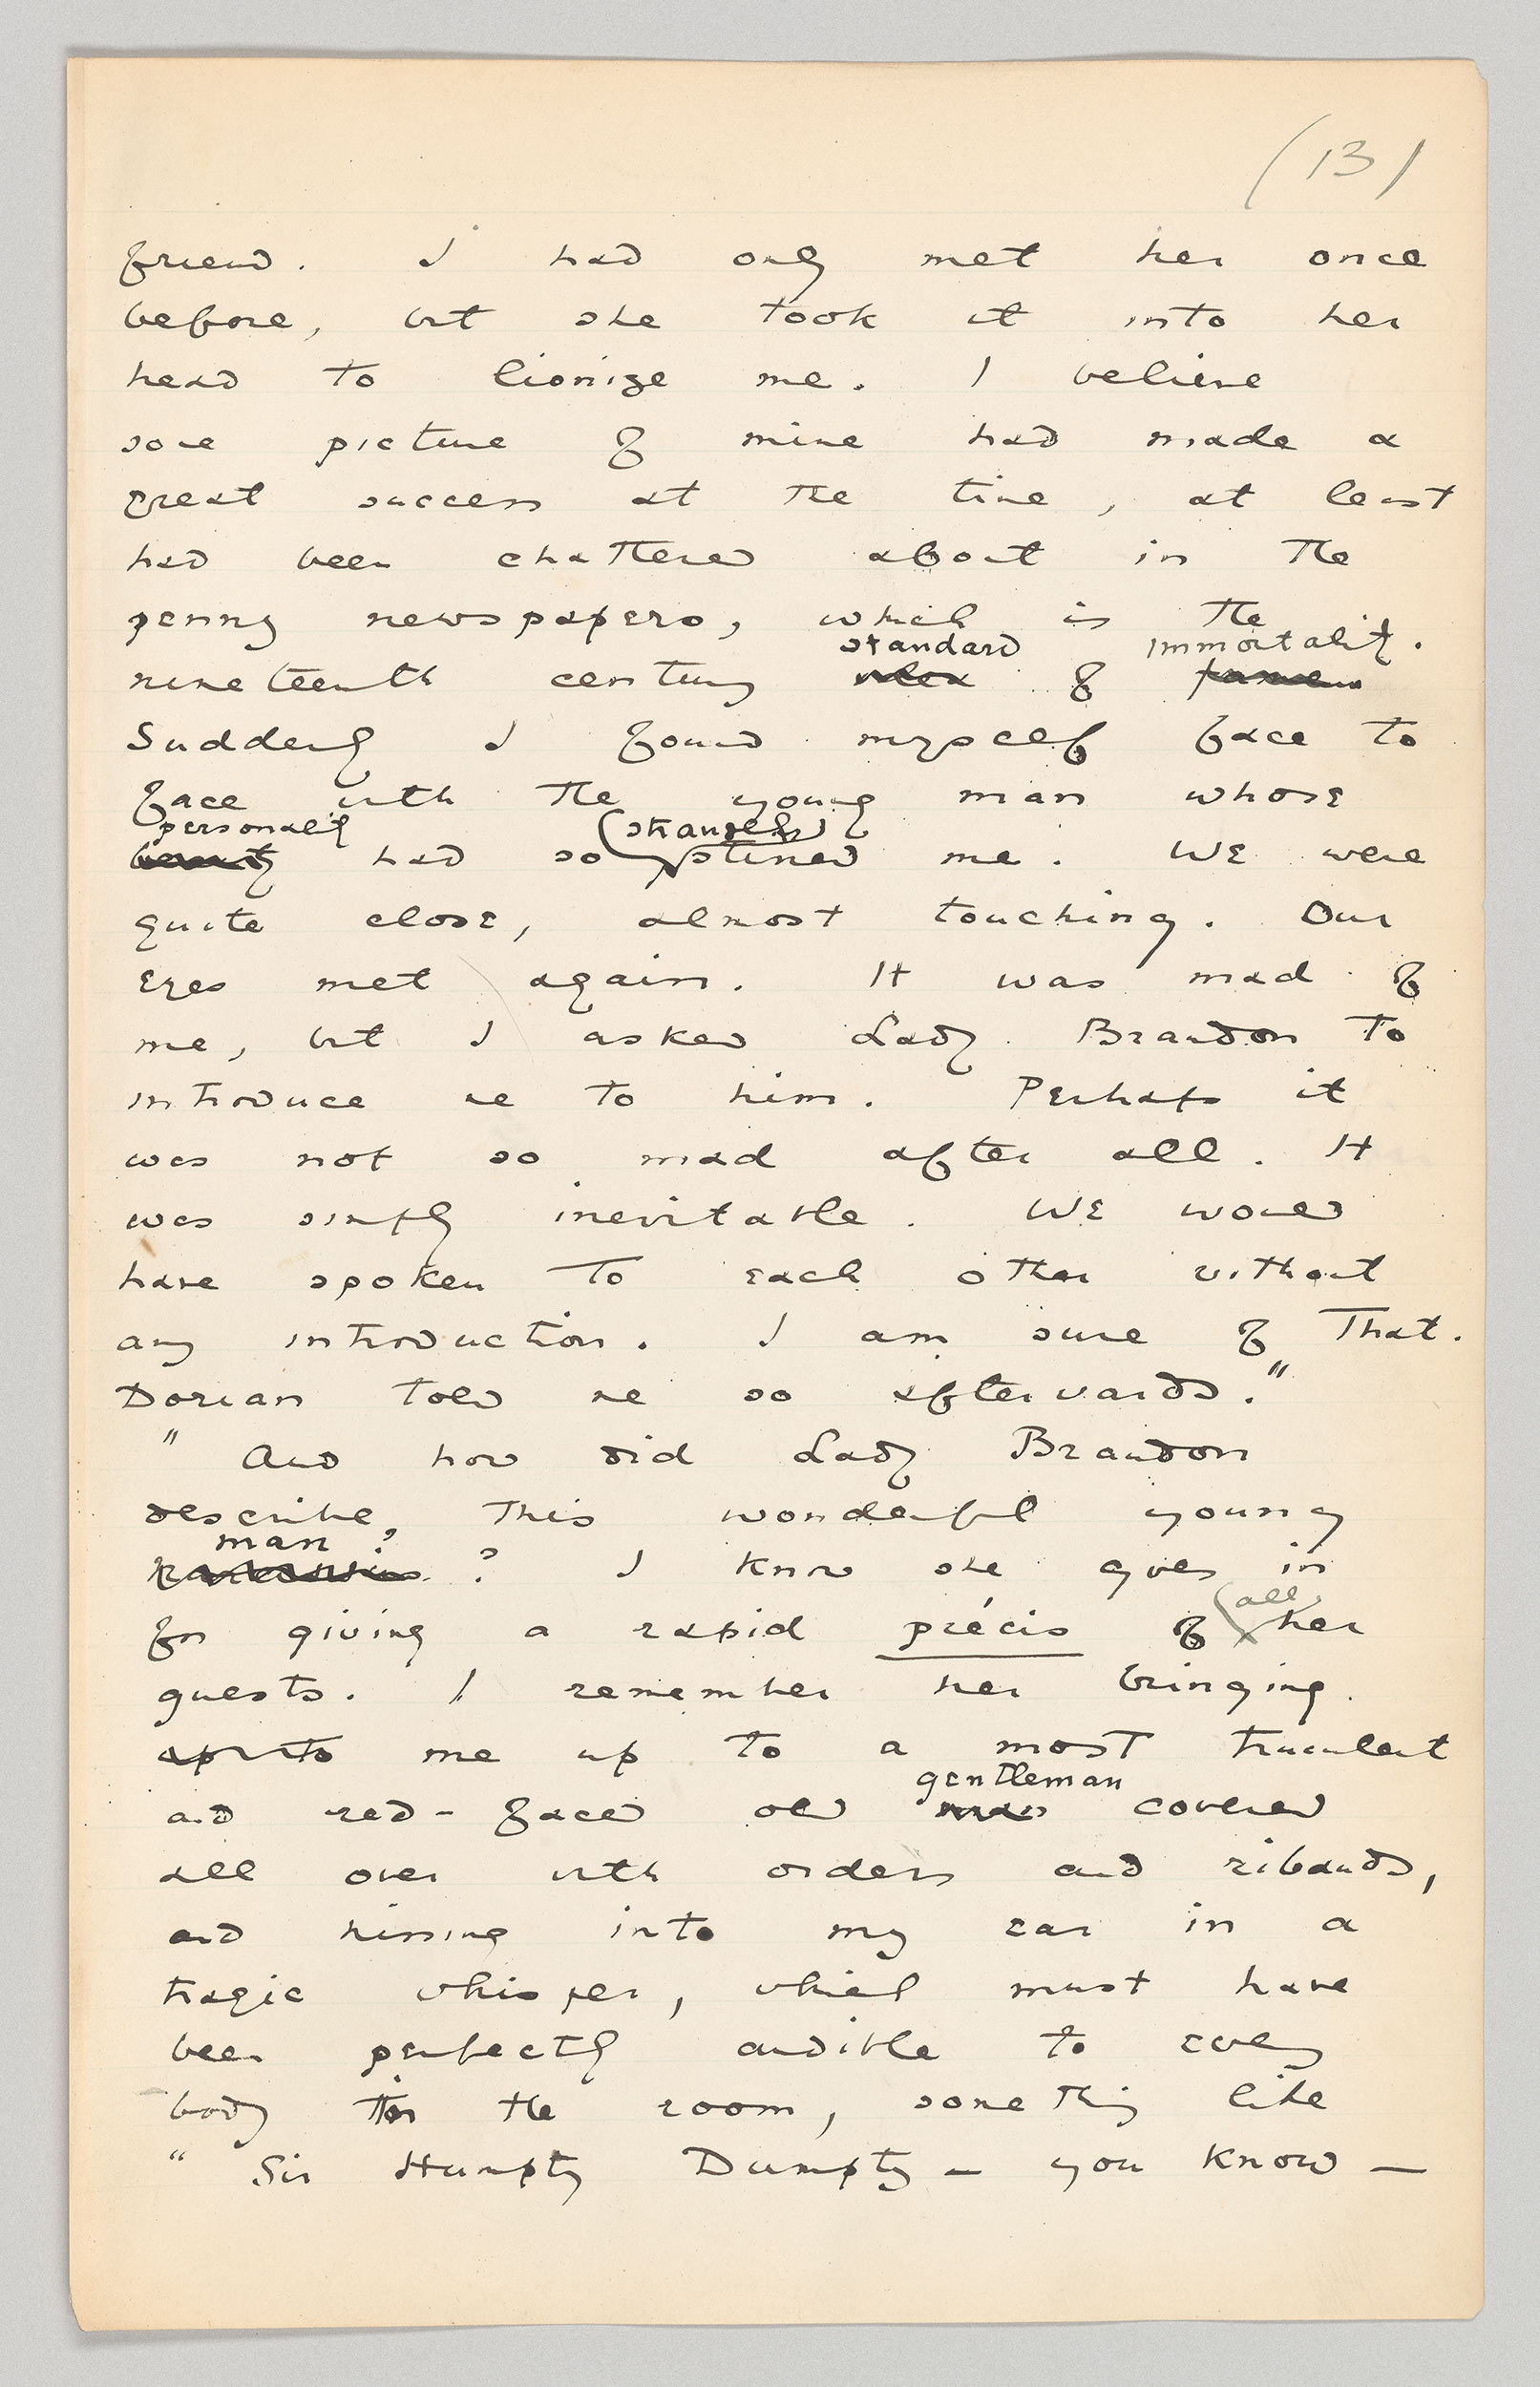 (13)
friend. I had only met her once
before, but she took it into her
head to lionize me. I believe
some picture of mine had made a
great success at the time, at least
had been chattered about in the
penny newspapers, which is the
standard immortality.
nineteenth century idea of fame
Suddenly I found myself face to
face with the young man whose
personality (strangely)
beauty had so stirred me. We were
quite close, almost touching. Our
eyes met again. It was mad of
me, but I asked Lady Brandon to
introduce me to him. Perhaps it
was not so mad after all. It
was simply inevitable. We would
have spoken to each other without
any introduction. I am sure of that.
Dorian told me so afterwards."
" And how did Lady Brandon
describe this wonderful young
man ?
? I know she goes in
all
for giving a rapid précis of her
guests. I remember her bringing
me up to a most truculent
gentleman
and red-faced old man covered
all over with orders and ribands,
and hissing into my ear in a
tragic whisper, which must have
been perfectly audible to every
body in the room, something like
" Sir Humpty Dumpty – you know –